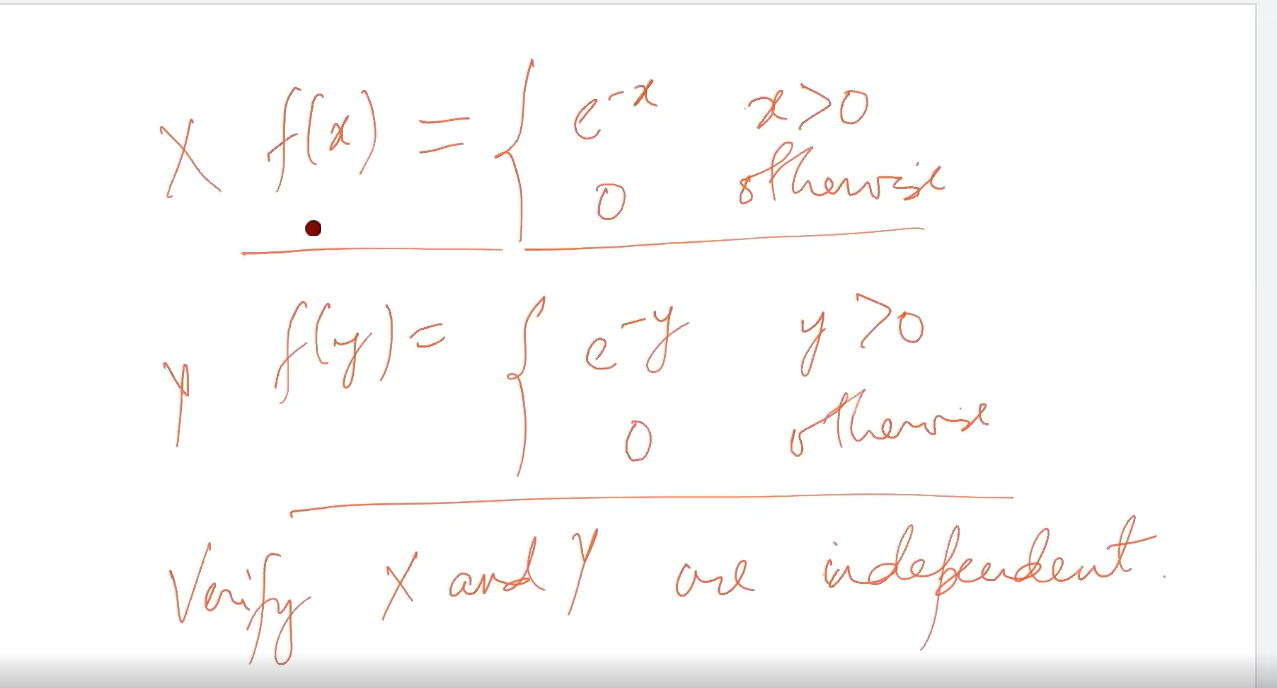 X f(x) = { e^-x x>0
0 otherwise
Y f(y) = { e^-y y>0
0 otherwise
Verify X and Y are independent.